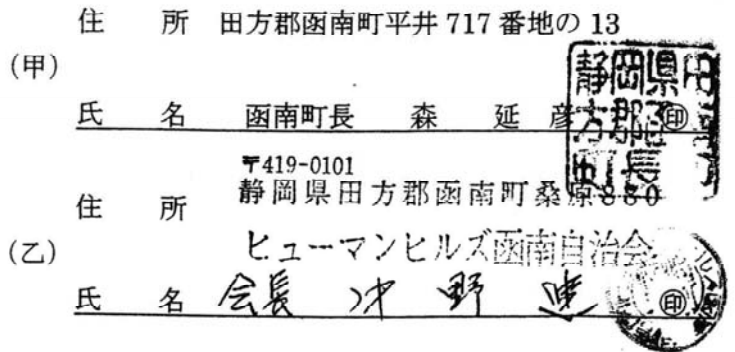 住 所 田方郡函南町平井717番地の13
(甲)
氏 名 函南町長 森 延 彦 ㊞
〒419-0101
住 所 静岡県田方郡函南町桑原880
(乙) ヒューマンヒルズ函南自治会
氏 名 会長 野 ㊞